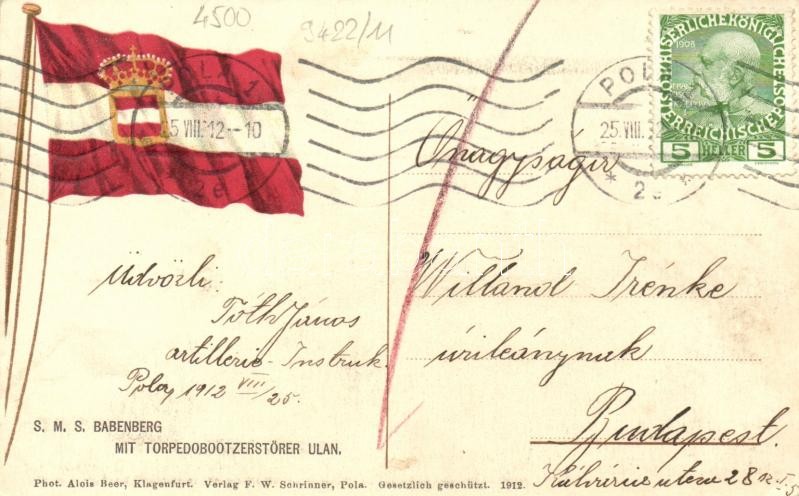 4500
9422/11
POLA 1
25 VIII. 12--10
* 2e *
POLA
25.VIII.
* 2e *
KAISERLICHE KÖNIGLICHE ÖSTERREICHISCHE POST
1908
5 HELLER 5
Önagysága
Willand Irénke
úrileánynak
Budapest.
28
Üdvözli:
Tóth János
artillerie-Instruk.
Pola, 1912 VIII/25.
S. M. S. BABENBERG
MIT TORPEDOBOOTZERSTÖRER ULAN.
Phot. Alois Beer, Klagenfurt. Verlag F. W. Schrinner, Pola. Gesetzlich geschützt. 1912.